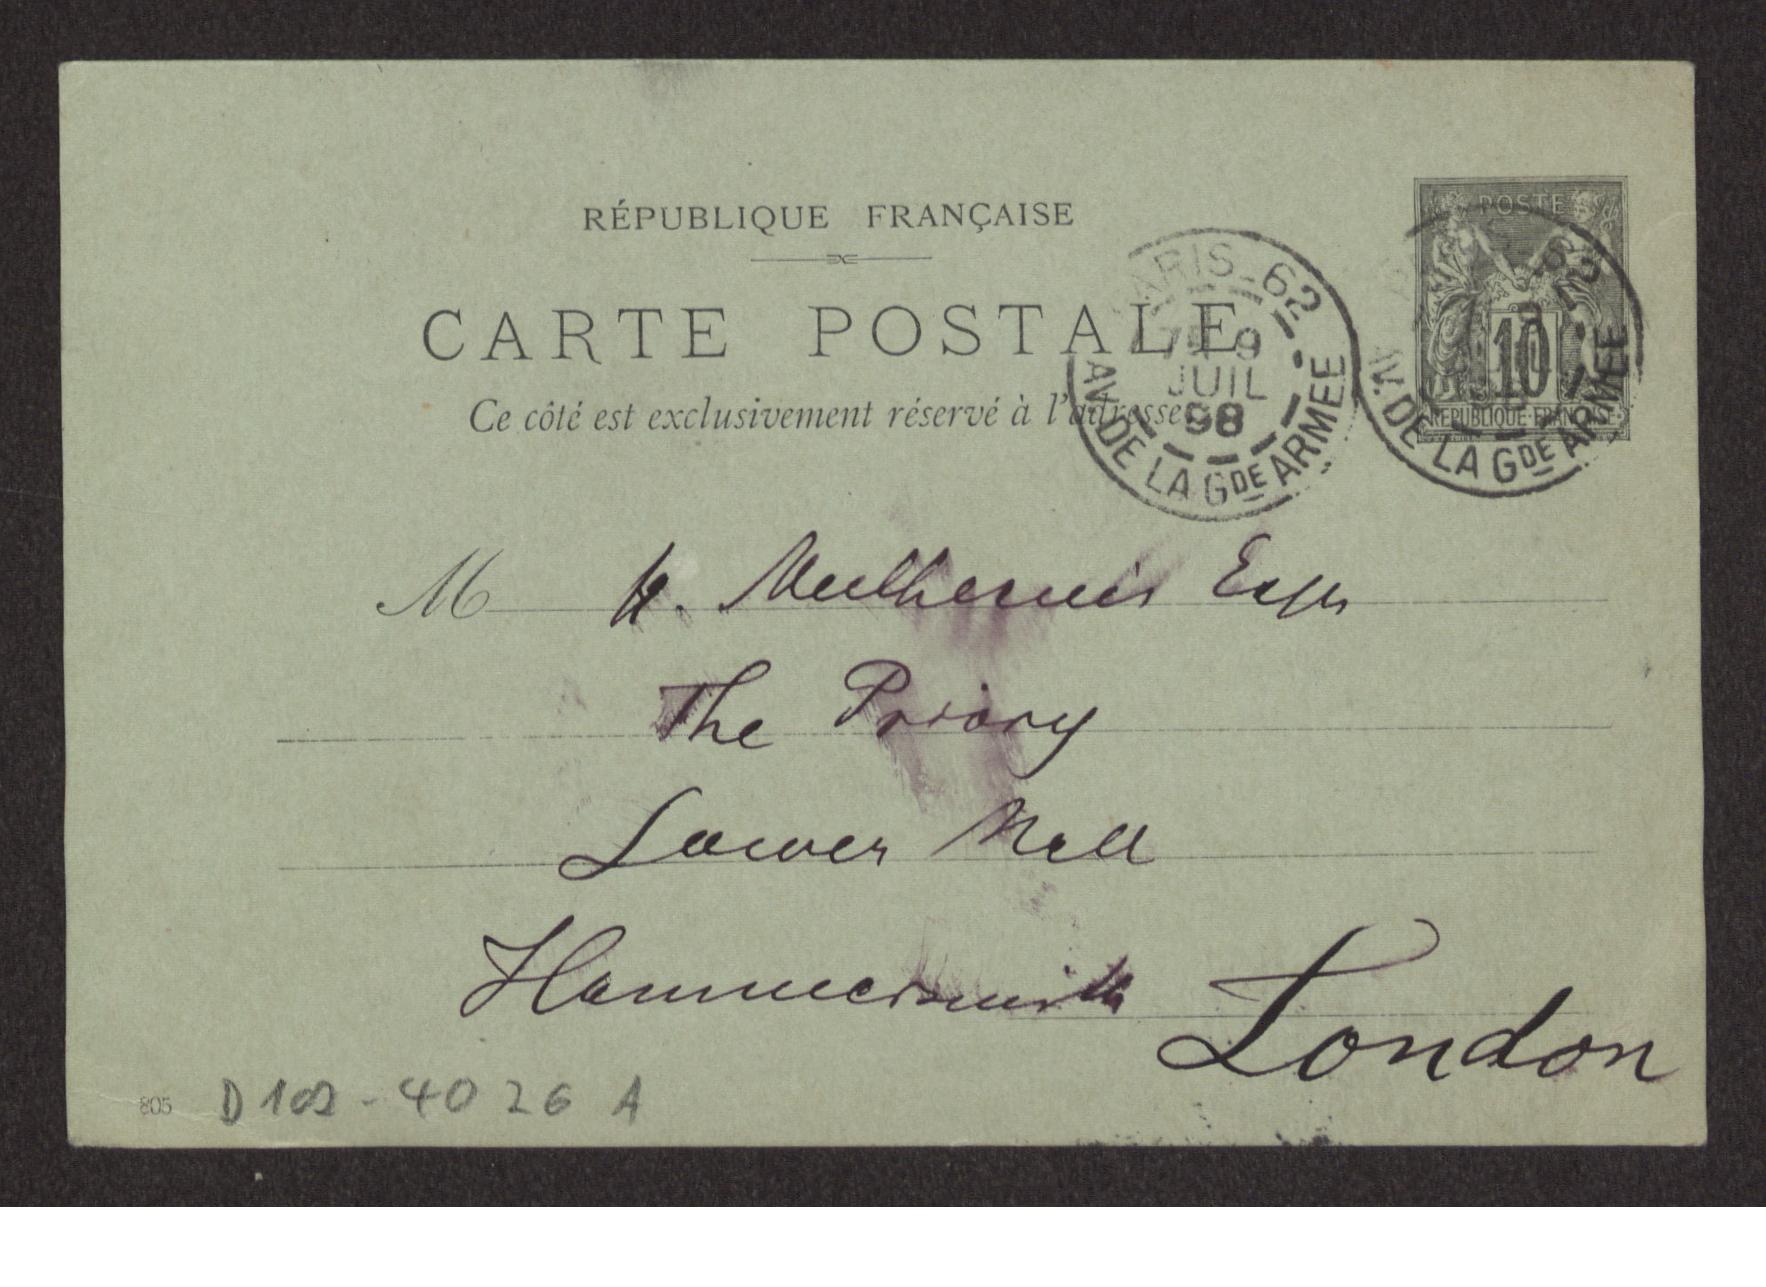 RÉPUBLIQUE FRANÇAISE
CARTE POSTALE
Ce côté est exclusivement réservé à l'adresse
POSTE
10
REPUBLIQUE FRANÇAISE
PARIS_62
9
JUIL
98
AV. DE LA GDE ARMEE
62
AV. DE LA GDE ARMEE
M H. Muthesius Esqu
The Priory
Lower Mall
Hammersmith
London
805
D 102-4026 A